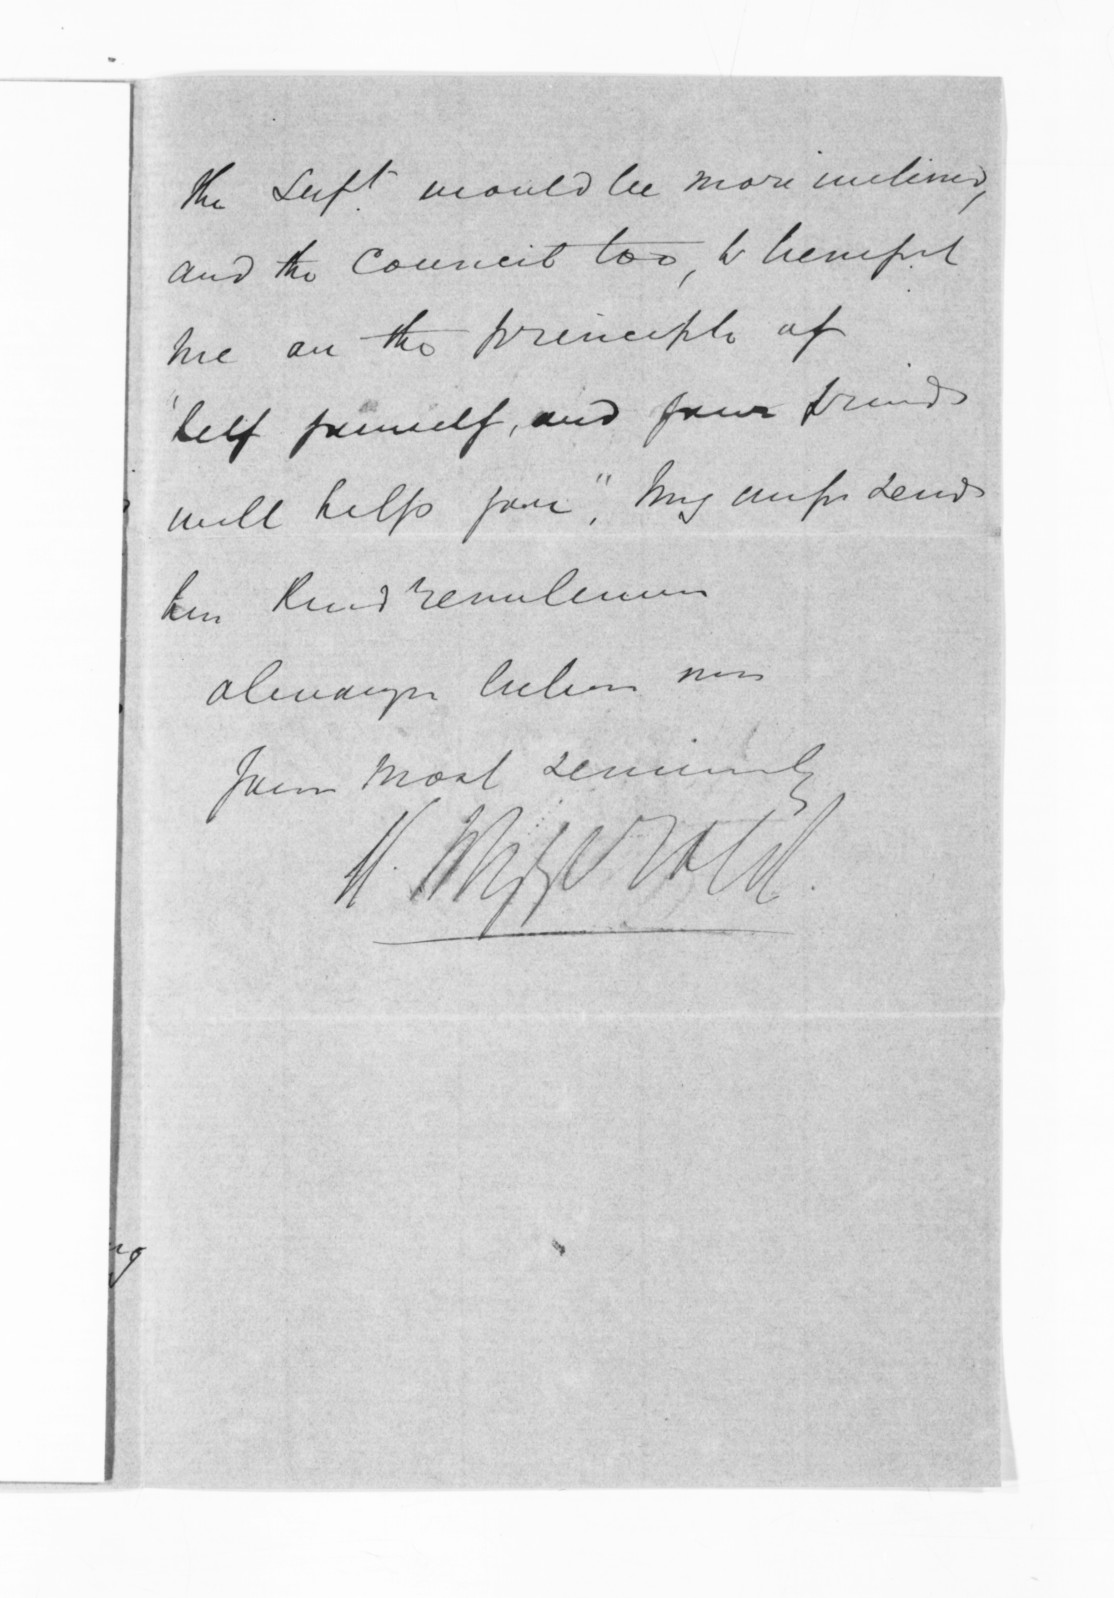 the Supt. would be more inclined,
and the Council too, to benefit
me on the principle of
'help yourself, and your friends
will help you". My wife sends
her kind remembrances
always believe me
your most sincerely
H.